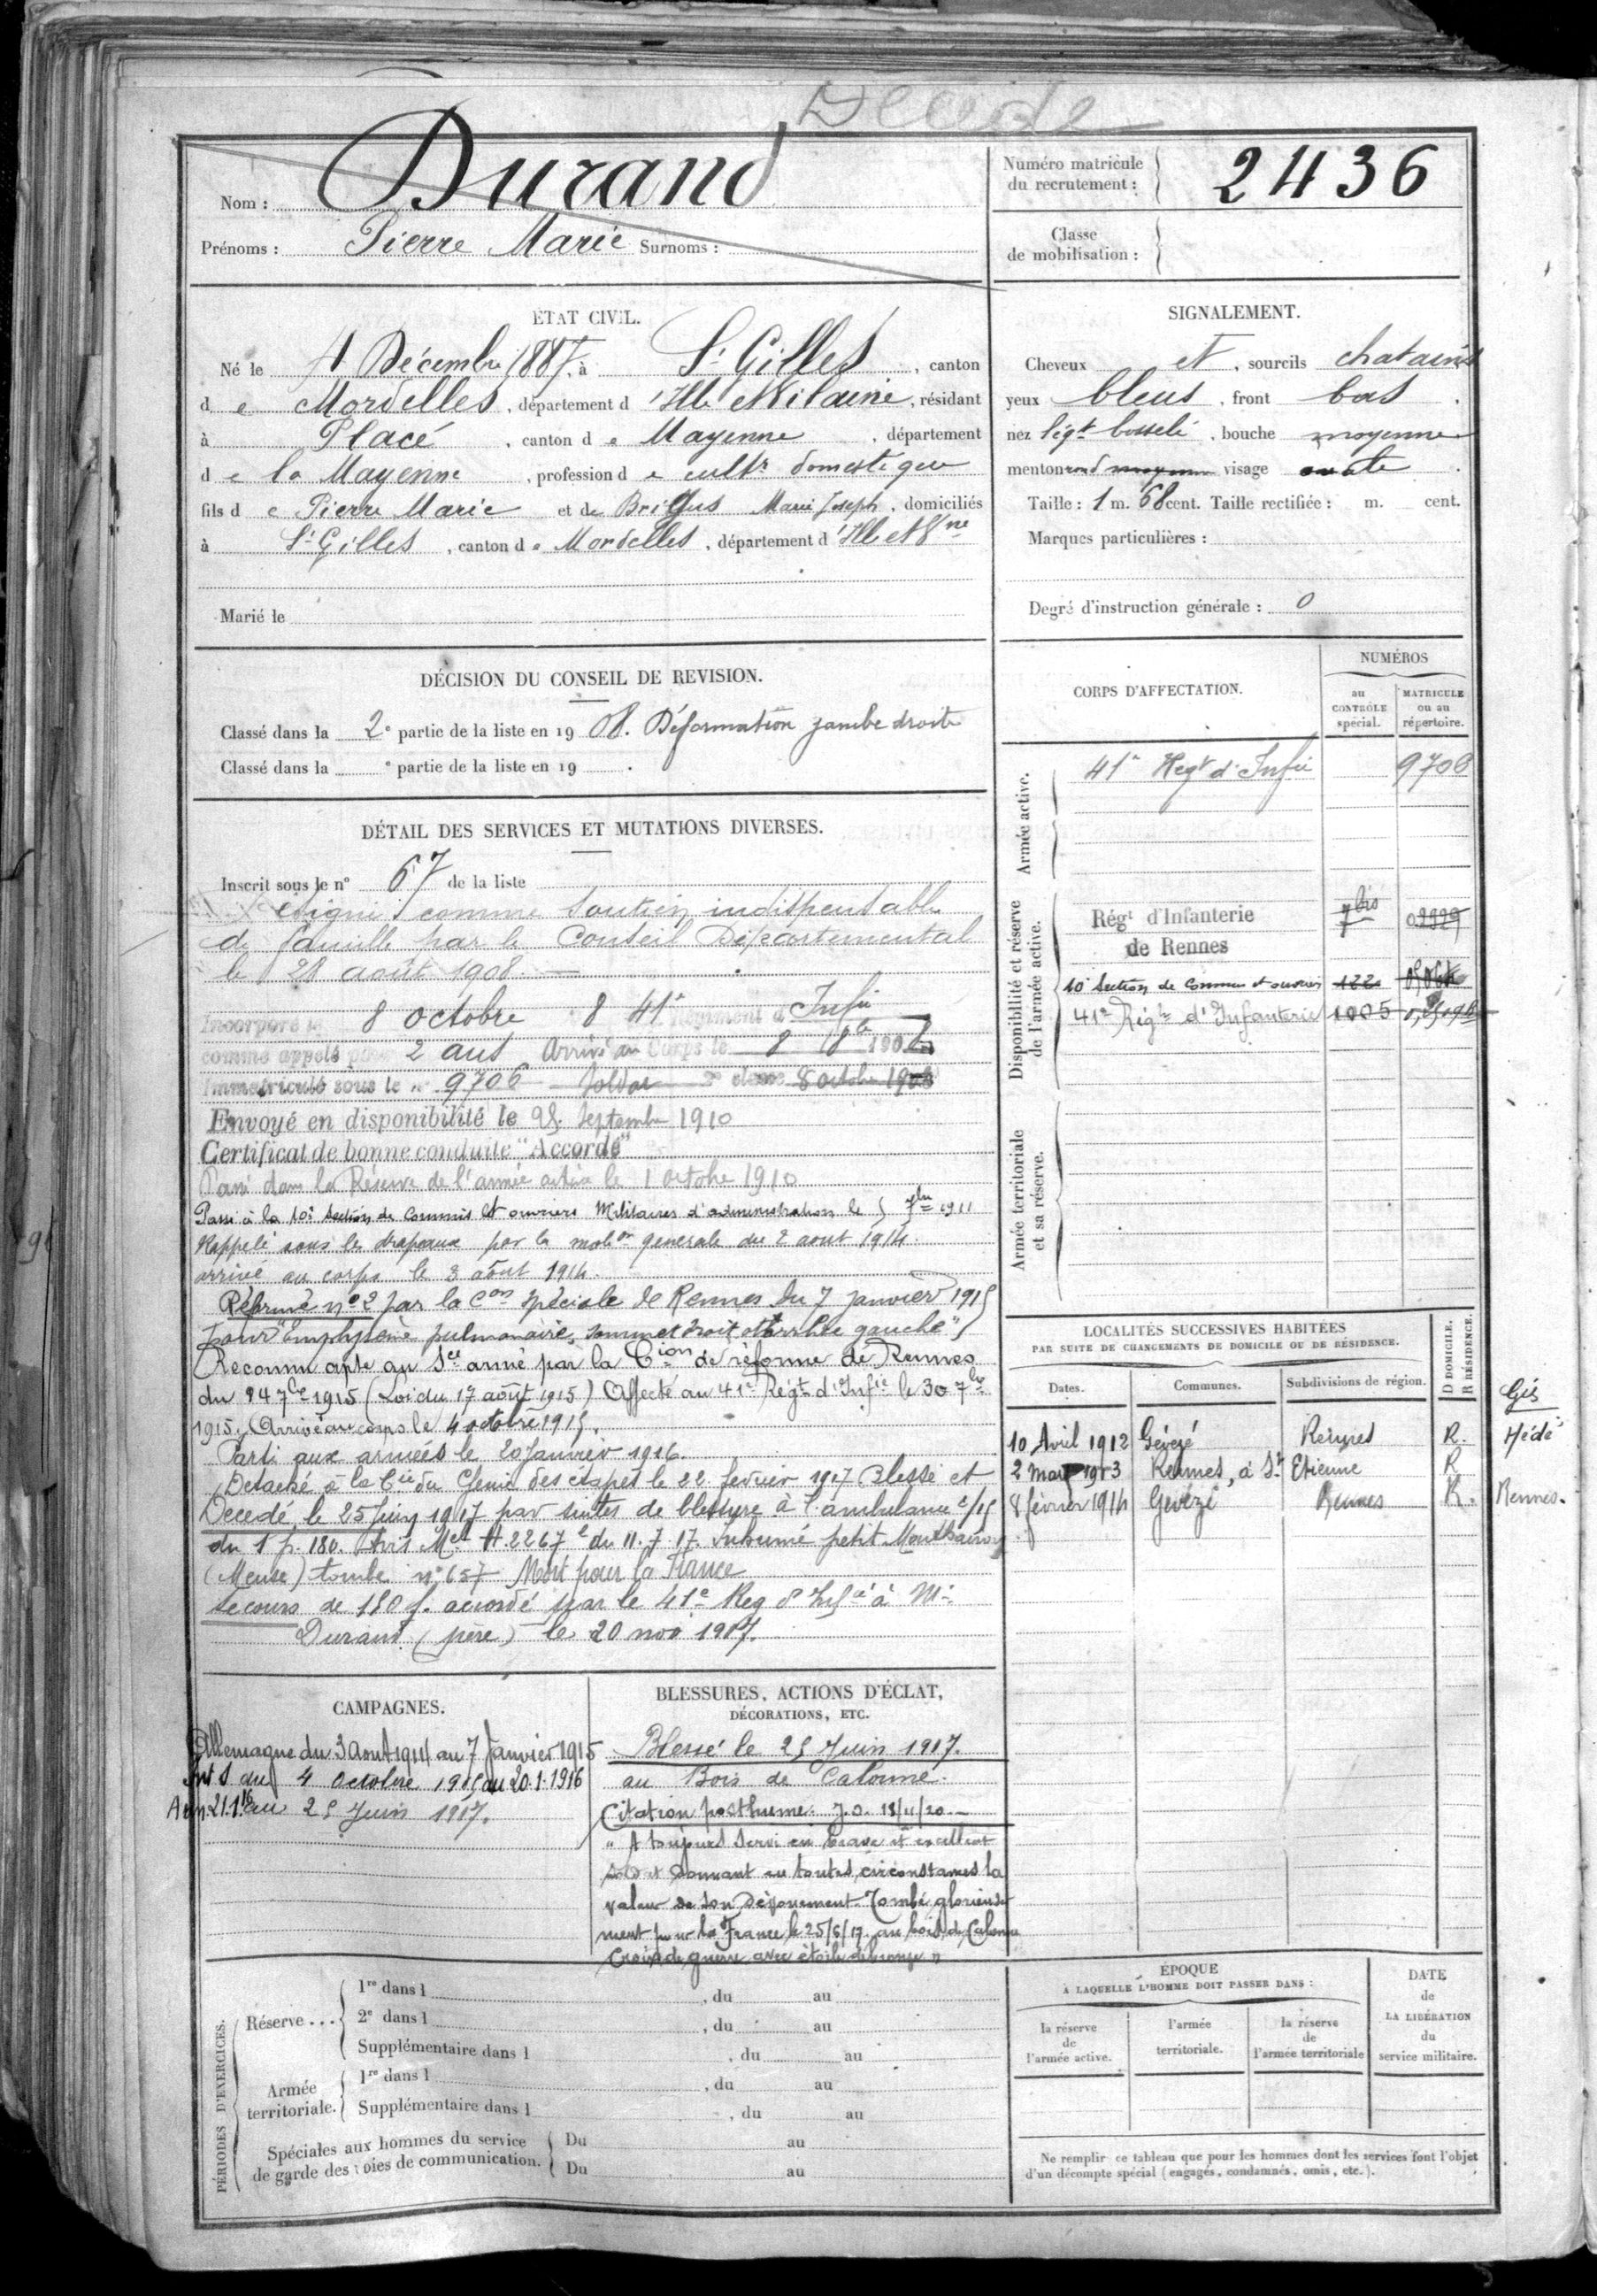 Décédé
Nom : Durand
Prénoms : Pierre Marie Surnoms :
Numéro matricule du recrutement : 2436
Classe de mobilisation :
ÉTAT CIVIL.
Né le 4 Décembre 1887, à St Gilles, canton
de Mordelles, département d'Ille et Vilaine, résidant
à Placé, canton de Mayenne, département
de la Mayenne, profession de cultr domestique
fils de Pierre Marie et de Marie Joseph, domiciliés
à St Gilles, canton de Mordelles, département d'Ille et Vne
Marié le
SIGNALEMENT.
Cheveux et, sourcils chatains
yeux bleus, front bas.
nez légt bosselé, bouche moyenne
menton rond moyen visage ovale.
Taille : 1 m. 68 cent. Taille rectifiée : m. cent.
Marques particulières :
Degré d'instruction générale : 0
DÉCISION DU CONSEIL DE REVISION.
Classé dans la 2e partie de la liste en 1908. Déformation jambe droite
Classé dans la e partie de la liste en 19 .
DÉTAIL DES SERVICES ET MUTATIONS DIVERSES.
Inscrit sous le n° 67 de la liste
Désigné comme soutien indispensable
de famille par le Conseil Départemental
le 28 août 1908.
Incorporé le 8 octobre 8 41e Régiment d'Infie
comme appelé pour 2 ans Arrivé au Corps le 8 8bre 1908
Immatriculé sous le n° 9706 Soldat 2e classe 8 octobre 1908
Envoyé en disponibilité le 25 Septembre 1910
Certificat de bonne conduite "Accordé"
Passé dans la Réserve de l'armée active le 1 octobre 1910
Passé à la 10e Section de Commis et ouvriers Militaires d'administration le 5 7bre 1911
Rappelé sous les drapeaux par la mobon generale du 2 aout 1914.
arrivé au corps le 3 aout 1914.
Réformé n° 2 par la Con spéciale de Rennes du 7 janvier 1915
pour "Emphysème pulmonaire, sommet droit, otorrhée gauche"
Reconnu apte au Sce armé par la Cion de réforme de Rennes
du 24 7bre 1915 (Loi du 17 août 1915) Affecté au 41e Régt d'Infie le 30 7bre
1915. Arrivé au corps le 4 octobre 1915.
Parti aux armées le 20 Janvier 1916
Détaché à la Cie du Génie des étapes le 22 fevrier 1917 Blessé et
Décédé le 25 juin 1917 par suites de blessure à l'ambulance 2/15
du 1 p. 180. Avis Mel H.2267 du 11.7.17. Inhumé petit Monthairon
(Meuse) tombe n° 657 Mort pour la France
Secours de 180 f. accordé par le 41e Reg d'Infie à Mr
Durand (père) le 20 nov 1917.
CORPS D'AFFECTATION.
NUMÉROS
au CONTRÔLE spécial.
MATRICULE ou au répertoire.
Armée active.
41e Regt d'Infie 9706
Disponibilité et réserve de l'armée active.
Régt d'Infanterie de Rennes 7bis
10e Section de Commis et ouvriers 122
41e Régt d'Infanterie 1005
Armée territoriale et sa réserve.
LOCALITÉS SUCCESSIVES HABITÉES
PAR SUITE DE CHANGEMENTS DE DOMICILE OU DE RÉSIDENCE.
Dates. Communes. Subdivisions de région. D DOMICILE. R RÉSIDENCE.
10 Avril 1912 Gévezé Rennes R. Hédé
2 mars 1913 Rennes, à St Etienne R
8 février 1914 Gévezé Rennes R. Rennes.
CAMPAGNES.
Allemagne du 3 Aout 1914 au 7 Janvier 1915
Int S du 4 Octobre 1915 au 20.1.1916
Aux A 21.1.16 au 25 Juin 1917.
BLESSURES, ACTIONS D'ÉCLAT,
DÉCORATIONS, ETC.
Blessé le 25 Juin 1917.
au Bois de Calonne.
Citation posthume. J.O. 18/11/20.
"A toujours servi en brave et excellent
soldat donnant en toutes circonstances la
valeur de son dévouement. Tombé glorieuse
ment pour la France le 25/6/17 au bois de Calonne
Croix de guerre avec étoile de bronze"
PÉRIODES D'EXERCICES.
Réserve...
1re dans l , du au
2e dans l , du au
Supplémentaire dans l , du au
Armée territoriale.
1re dans l , du au
Supplémentaire dans l , du au
Spéciales aux hommes du service de garde des voies de communication.
Du au
Du au
ÉPOQUE
À LAQUELLE L'HOMME DOIT PASSER DANS :
la réserve de l'armée active.
l'armée territoriale.
la réserve de l'armée territoriale
DATE de LA LIBÉRATION du service militaire.
Ne remplir ce tableau que pour les hommes dont les services font l'objet
d'un décompte spécial (engagés, condamnés, omis, etc.).